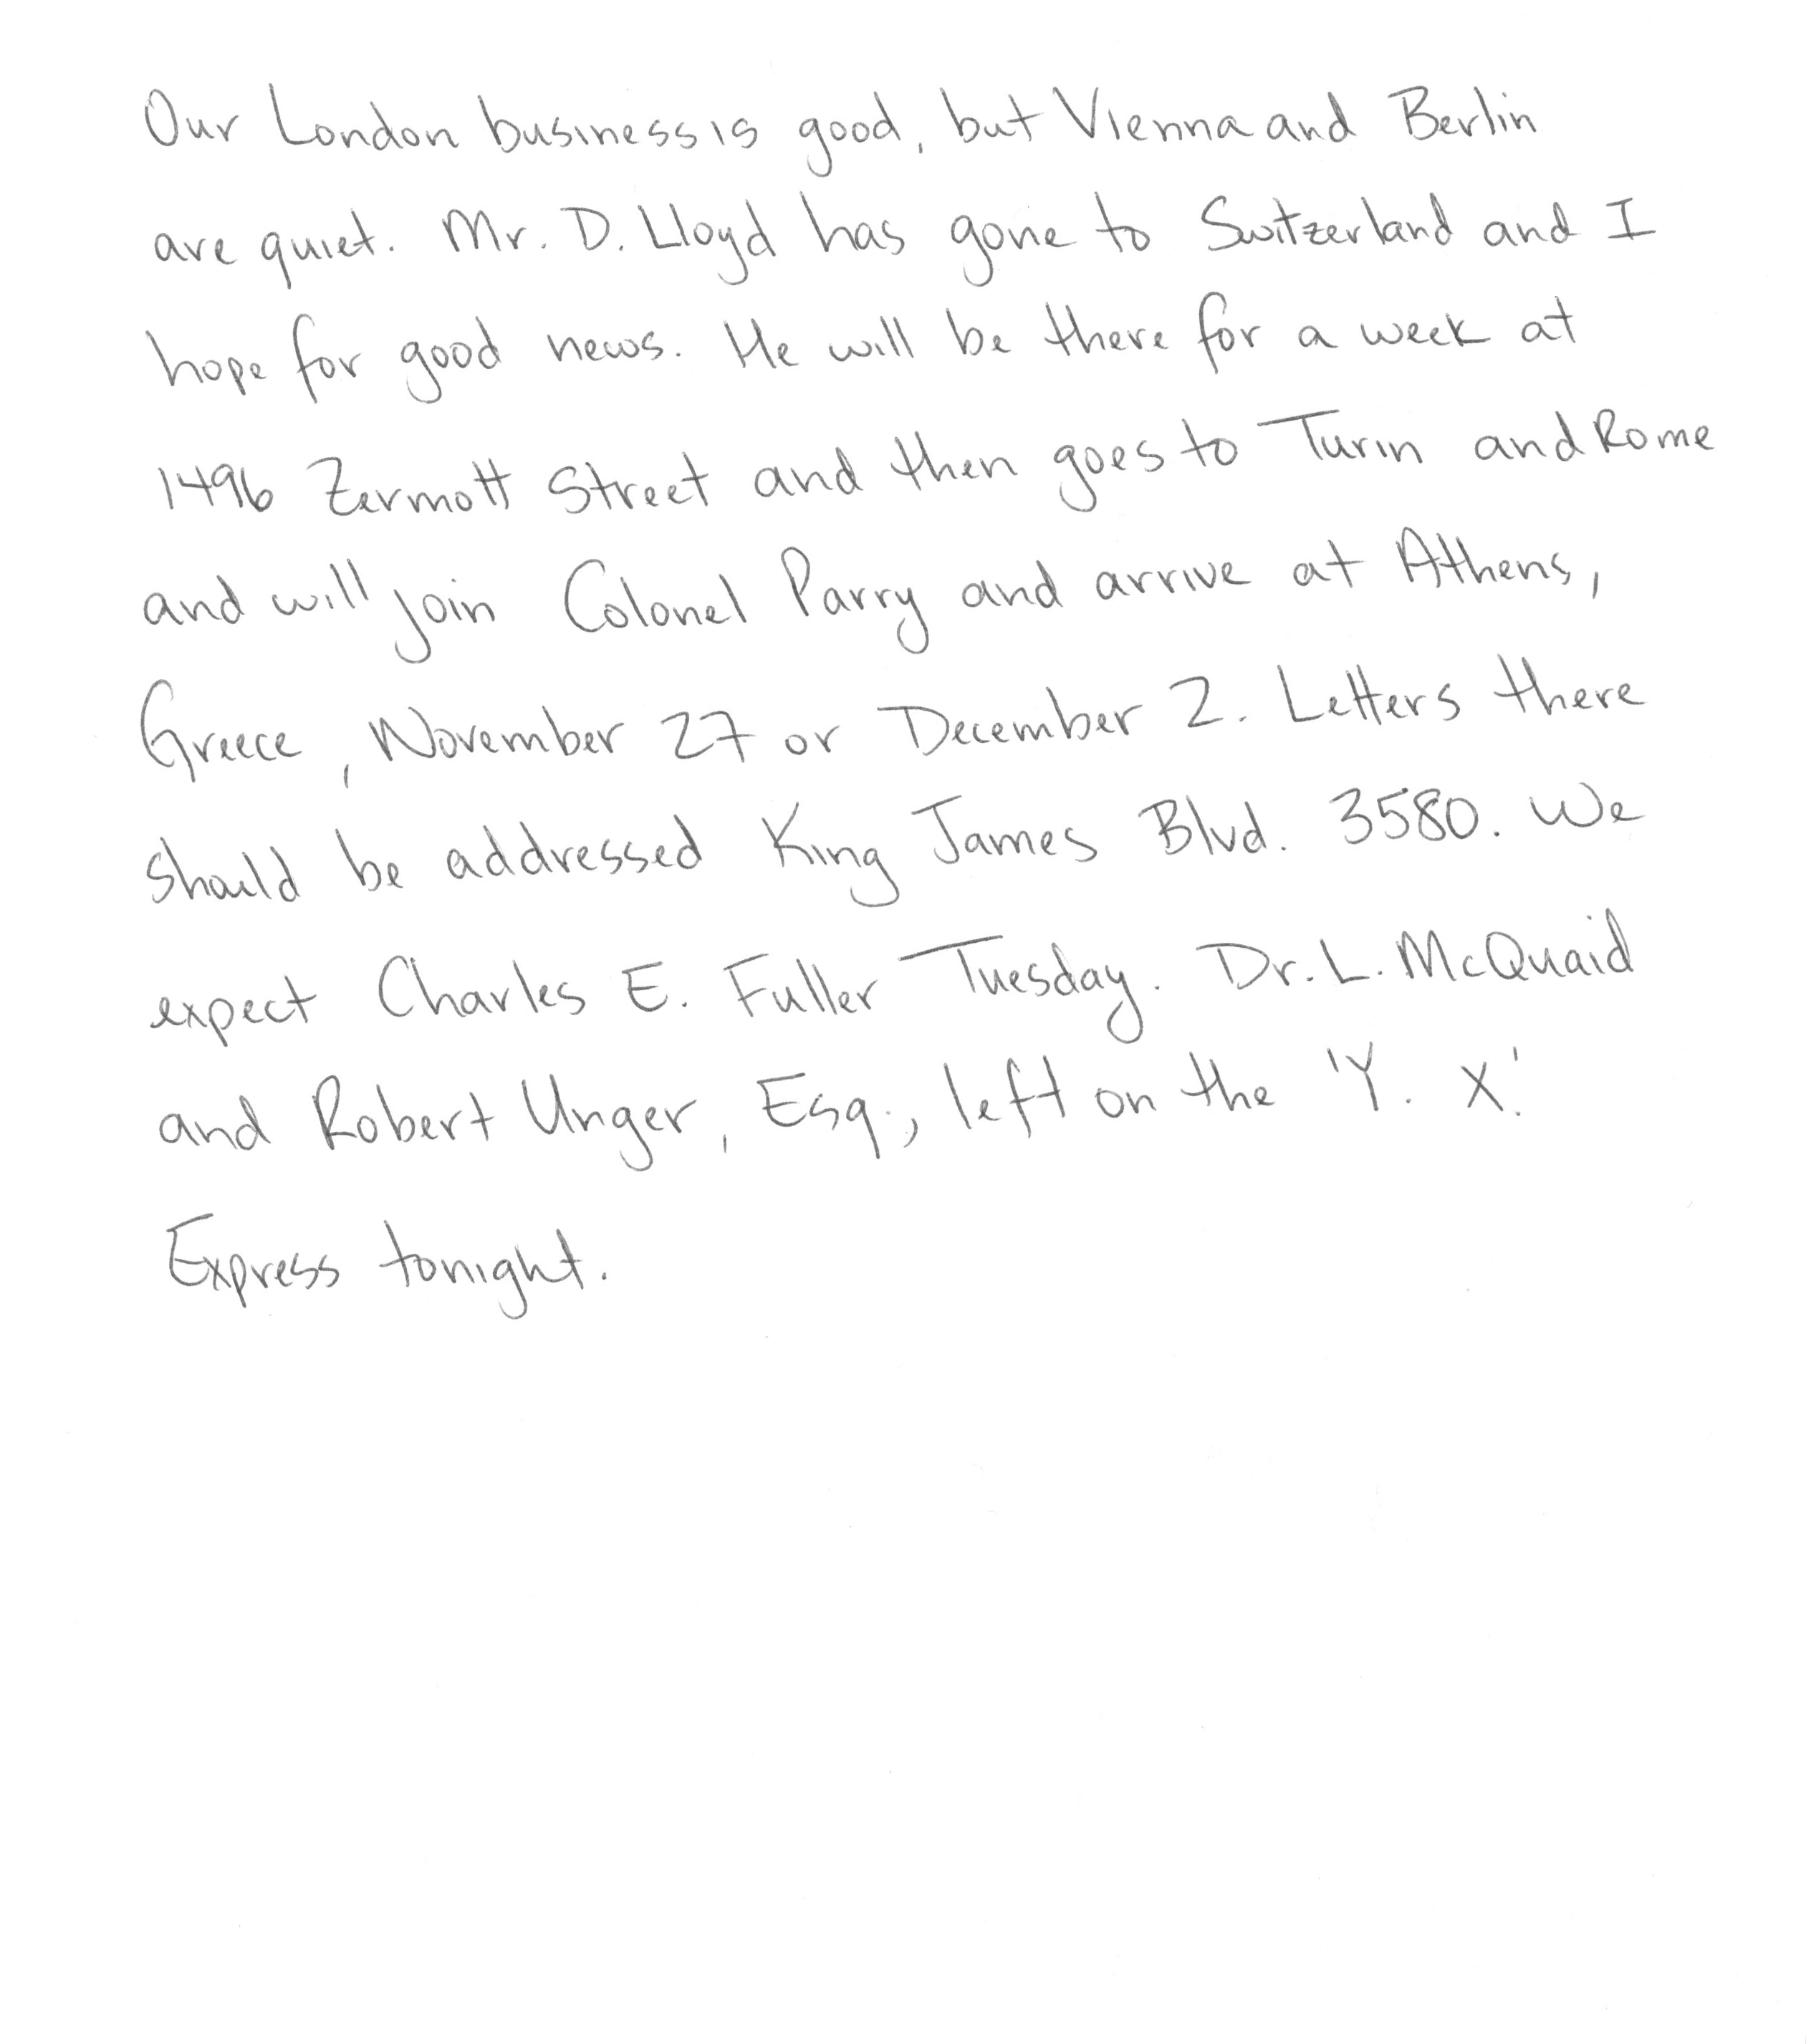 Our London business is good, but Vienna and Berlin
are quiet. Mr. D. Lloyd has gone to Switzerland and I
hope for good news. He will be there for a week at
1496 Zermott Street and then goes to Turin and Rome
and will join Colonel Parry and arrive at Athens,
Greece, November 27 or December 2. Letters there
should be addressed King James Blvd. 3580. We
expect Charles E. Fuller Tuesday. Dr. L. McQuaid
and Robert Unger, Esq., left on the 'Y. X.'
Express tonight.